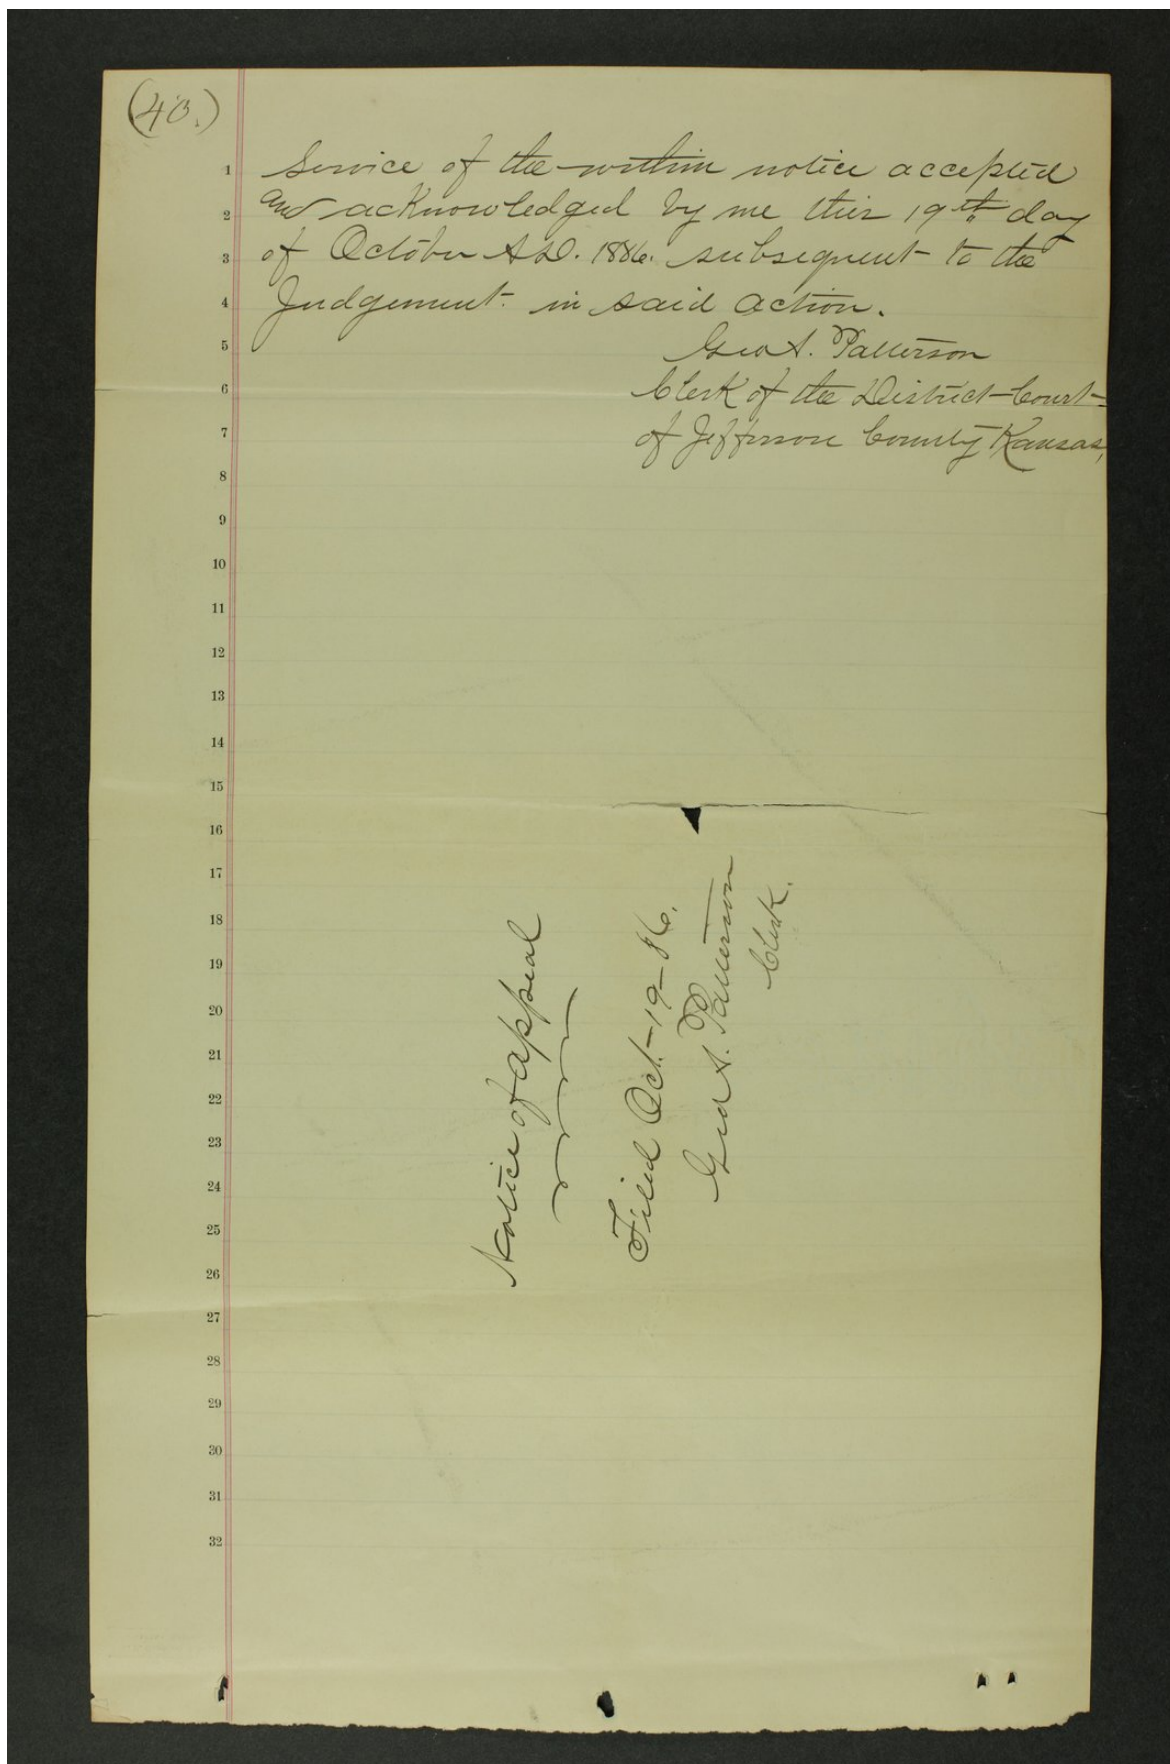 (40.)
1 Service of the within notice accepted
2 and acknowledged by me this 19th day
3 of October A.D. 1886. subsequent to the
4 Judgement in said action.
5 Geo A. Patterson
6 Clerk of the District Court
7 of Jefferson County Kansas,
8
9
10
11
12
13
14
15
16
17
18
19
20
21
22
23
24
25
26
27
28
29
30
31
32
Notice of appeal
Filed Oct-19-86.
Geo A. Patterson
Clerk.